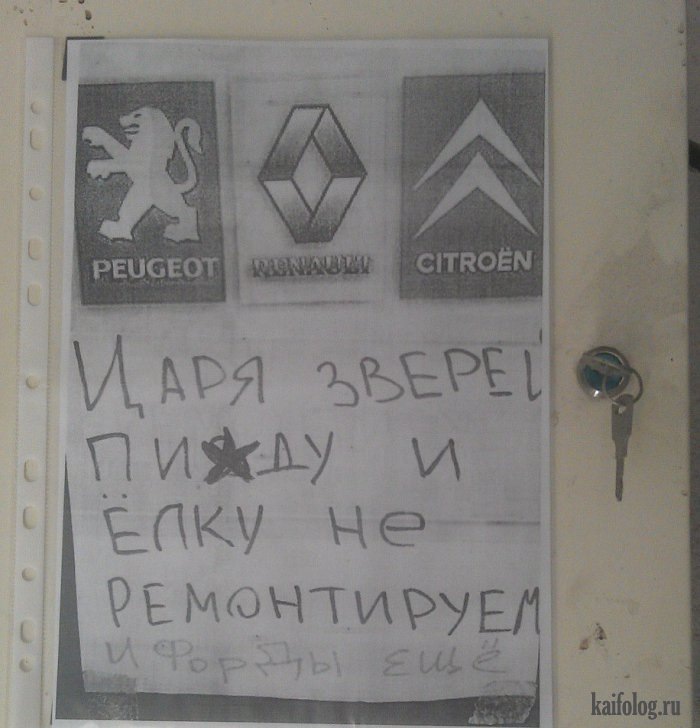 PEUGEOT RENAULT CITROËN
ЦАРЯ ЗВЕРЕЙ
ПИ★ДУ И
ЁЛКУ Не
РЕМОНТИРУЕМ
И ФОРДЫ ЕЩЁ
kaifolog.ru